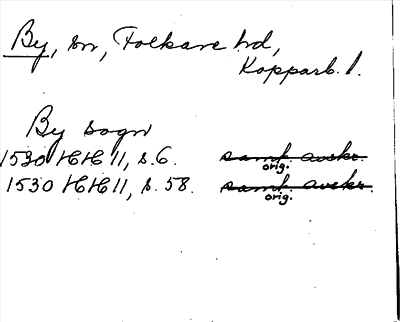 By, sn, Folkare hd,
Kopparb. l.
By sogn
1530 HH 11, s. 6. samt. avskr. orig.
1530 HH 11, s. 58. samt. avskr. orig.